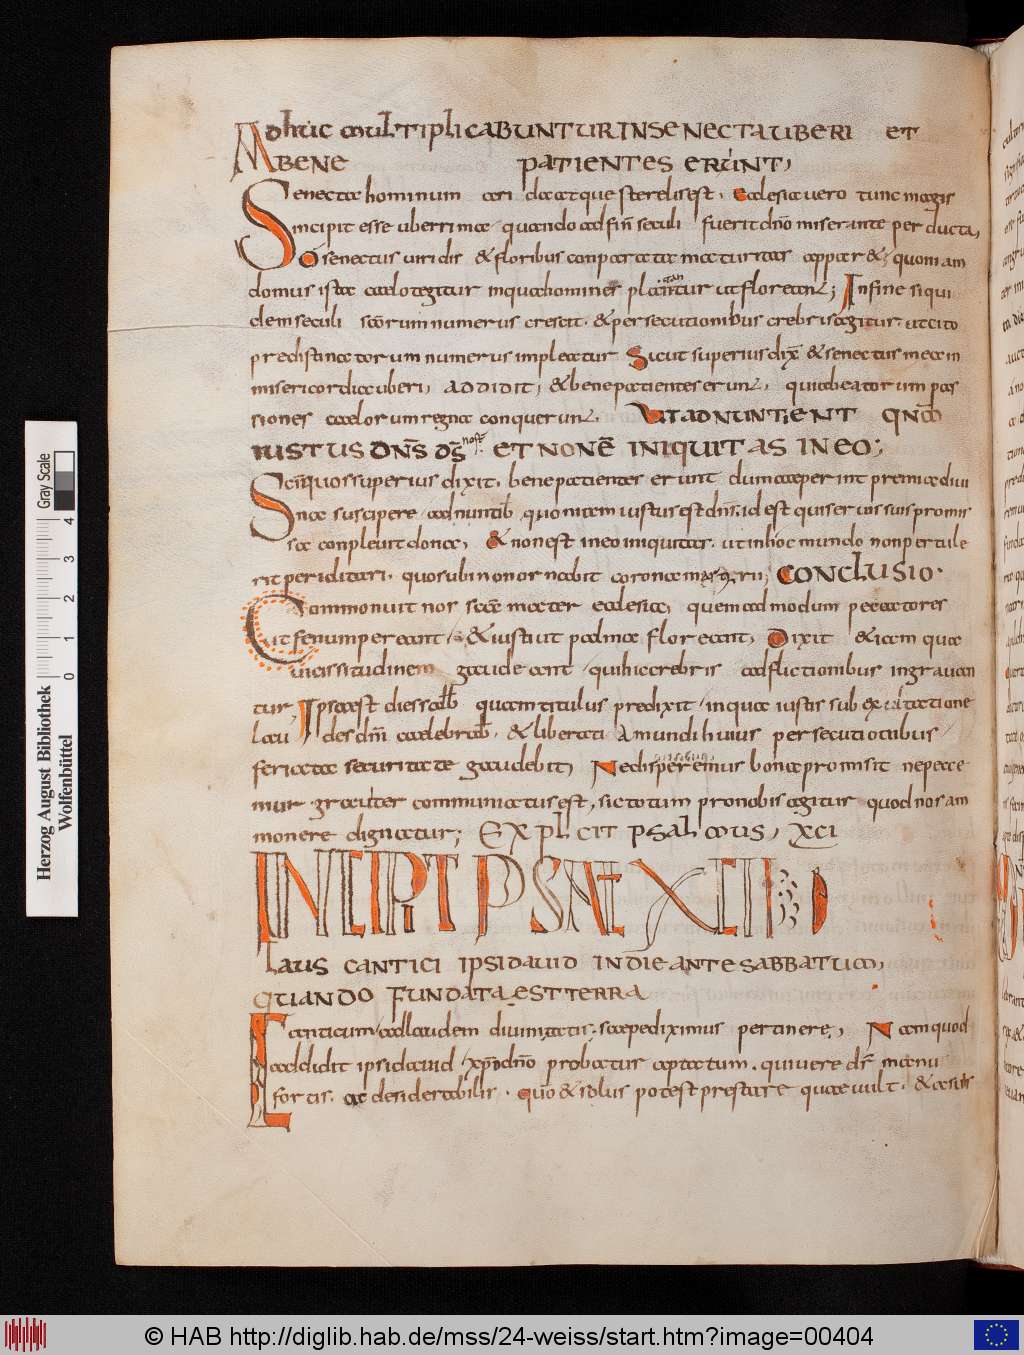 Adhuc multiplicabuntur in senecta uberi et
bene patientes erunt,
Senectae hominum cari docatque sterelis est. ecclesiae uero tunc magis
incipit esse uberrimae quando ad fin̄ seculi fuerit dn̄o miserante perducta,
O senectus uiridis & floribus conparata maturitas appar& quoniam
domus ista caelo tegitur in qua homines plantantur ut floreant; In fine siqui
dem seculi scōrum numerus crescit. & persecutionibus crebris agitur ut cito
predistinatorum numerus impleatur Sicut superius dix̄ & senectus mea in
misericordia uberi, addidit, & bene patientes erunt, quia beatorum pas
siones caelorum regna conquerunt. Ut adnuntient qnō
iustus dn̄s d̄s nost̄ et non ē iniquitas in eo;
Scī quos superius dixit. bene patientes erunt dum caeperint premia diui
na suscipere adnuntiab̄ quoniam iustus est dn̄s. id est qui seruis suis promis
sa conpleuit donare, & non est in eo iniquitas. ut in hoc mundo non pertule
rit periditari. quos ubi non ornabit corona martyrii; Conclusio.
Commonuit nos scā mater ecclesia, quem ad modum peccatores
ut fenum pereant & iusti ut palma floreant, Dixit & iam qua
uicissitudinem gaudeant qui hic crebris adflictionibus ingrauan
tur, Ipsa est dies sabb̄ quam titulus predixit in qua iustis sub exaltatione
lau des dn̄i caelebrab̄. & liberati a mundi huius persecutionibus
feriata securitate gaudebit, Ne disperemus bona promisit ne pecce
mur grauiter communicatus est, sic totum pro nobis agitur quod nos am
monere dignatur; Explicit psalmus, xci
INCIPIT PSAL XCII
Laus cantici ipsi dauid in die ante sabbatum,
quando fundata est terra
Canticum ad laudem diuinitatis, saepe diximus pertinere, Nam quod
addidit ipsi dauid xp̄o dn̄o probatur aptatum. qui uere d̄r manu
fortis. ac desiderabilis. Quō & solus potest prestare quae uult. & aesibilis
Herzog August Bibliothek
Wolfenbüttel
0 1 2 3 4
Gray Scale
© HAB http://diglib.hab.de/mss/24-weiss/start.htm?image=00404